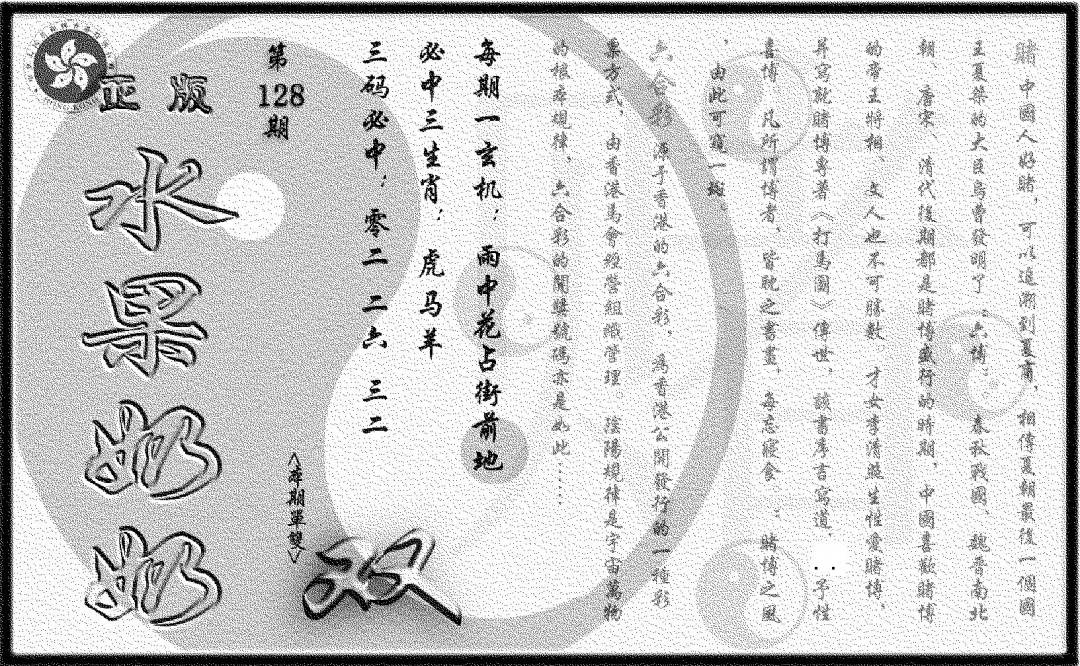 賭中國人好賭，可以追溯到夏商，相傳夏朝最後一個國
王夏桀的大臣烏曹發明了：六博；春秋戰國、魏晉南北
朝、唐宋、清代後期都是賭博盛行的時期，中國喜歡賭博
的帝王將相、文人也不可勝數，才女李清照生性愛賭博，
并寫就賭博專著《打馬圖》傳世，該書序言寫道，：予性
喜博，凡所謂博者，皆耽之晝夜，每忘寢食；賭博之風
，由此可窺一斑。
六合彩源于香港的六合彩，為香港公開發行的一種彩
票方式，由香港馬會經營組織管理。陰陽規律是宇宙萬物
的根本規律，六合彩的開獎號碼亦是如此……
每期一玄机：雨中花占街前地
必中三生肖：虎马羊
三码必中：零二 二六 三二
第
128
期
<本期單雙>
双
正版
水果奶奶
HONG KONG